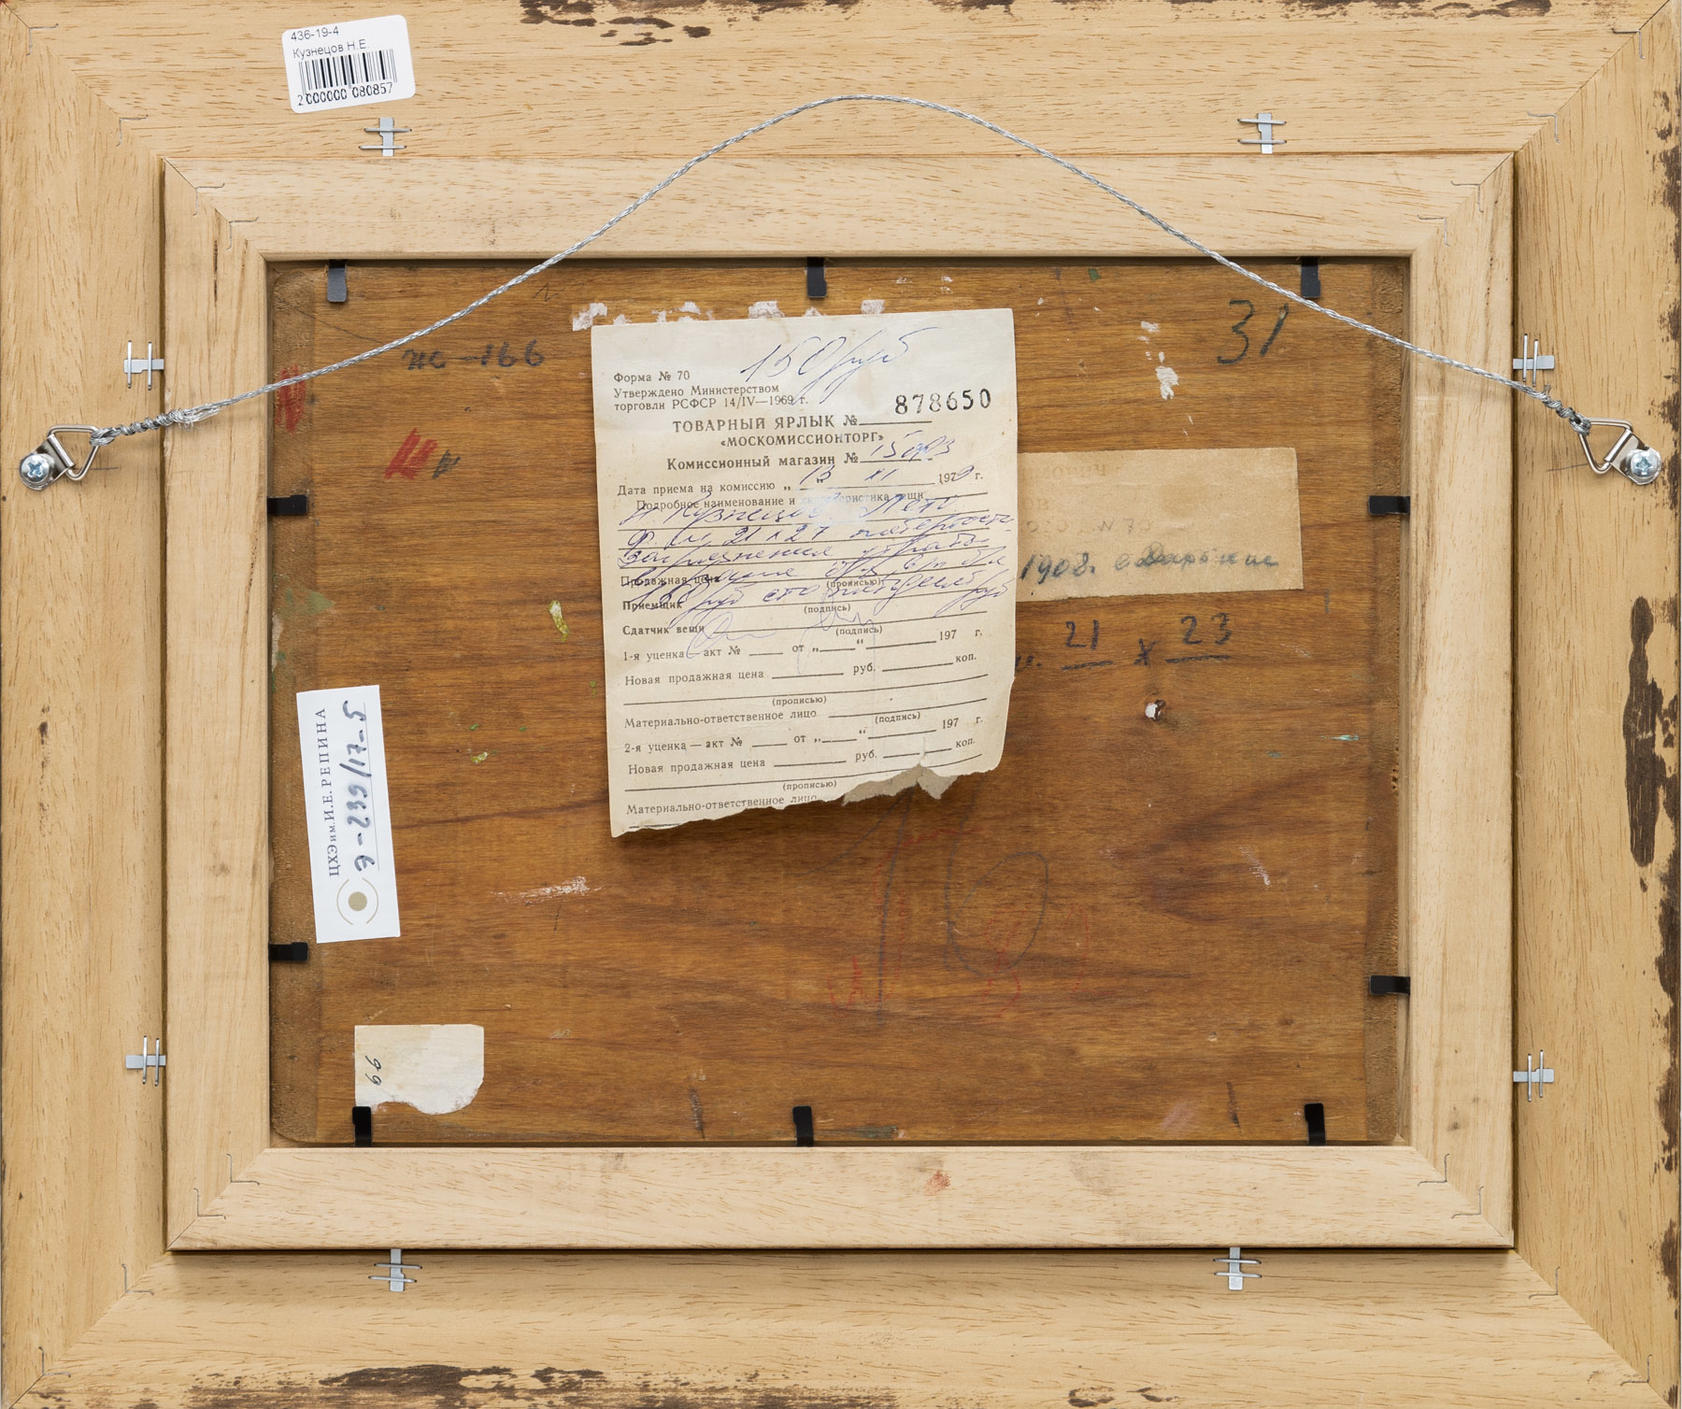 436-19-4
Кузнецов Н.Е.
2 000000 080857
150 руб
Форма № 70
Утверждено Министерством
торговли РСФСР 14/IV—1969 г.
878650
ТОВАРНЫЙ ЯРЛЫК №
«МОСКОМИССИОНТОРГ»
Комиссионный магазин № 15
Дата приема на комиссию „ 13 “ XI 1979 г.
Подробное наименование и характеристика вещи
Н Кузнецов Лето
21 х 27
загрязнения
Продажная цена (прописью)
150 руб сто пятьдесят руб
Приемщик (подпись)
Сдатчик вещи (подпись)
1-я уценка — акт № от „ “ 197 г.
Новая продажная цена руб. коп.
(прописью)
Материально-ответственное лицо (подпись)
2-я уценка — акт № от „ “ 197 г.
Новая продажная цена руб. коп.
(прописью)
Материально-ответственное лицо
31
-166
1908г.
21 х 23
ЦХЭ им. И.Е. РЕПИНА
Э-239/17-5
99
16